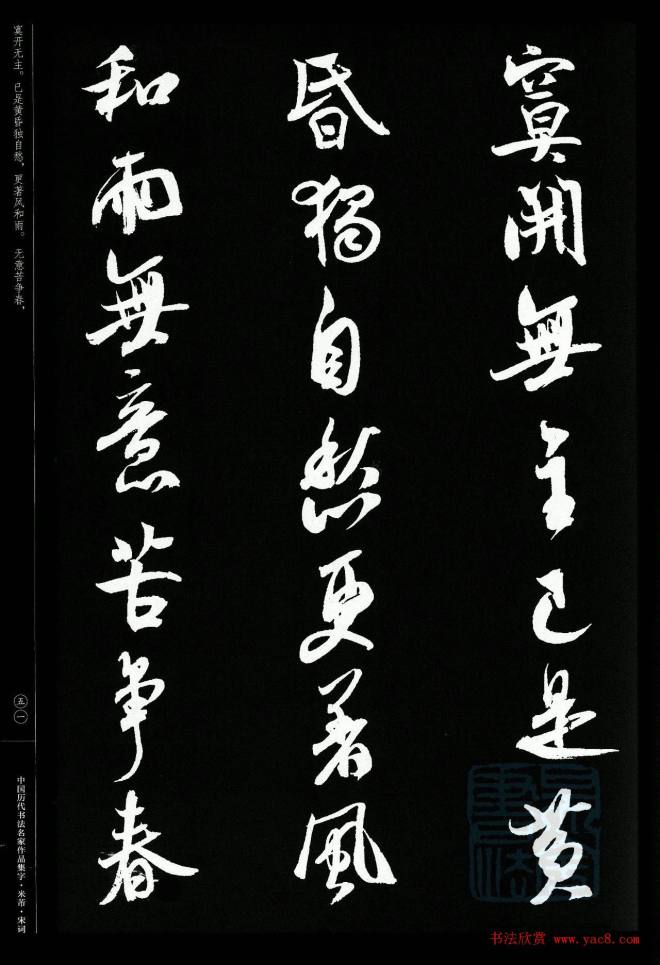 寞開無主已是黄
昏獨自愁更著風
和雨無意苦争春
寞开无主。已是黄昏独自愁，更著风和雨。 无意苦争春，
五一
中国历代书法名家作品集字·米芾·宋词
书法欣赏 www.yac8.com